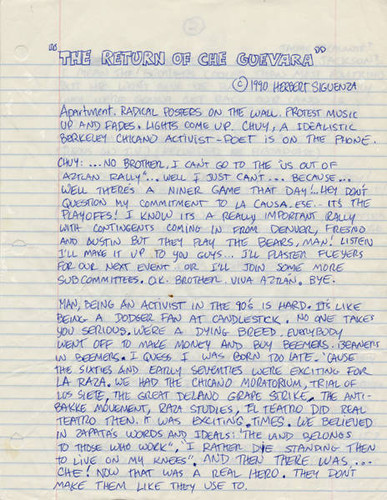 "THE RETURN OF CHE GUEVARA"
© 1990 HERBERT SIGUENZA
Apartment. RADICAL POSTERS ON THE WALL. PROTEST MUSIC
UP AND FADES. LIGHTS COME UP. CHUY, A IDEALISTIC
BERKELEY CHICANO ACTIVIST-POET IS ON THE PHONE.
CHUY: ... NO BROTHER, I CAN'T GO TO THE "US OUT OF
AZTLAN RALLY"... WELL I JUST CAN'T.... BECAUSE...
WELL THERE'S A NINER GAME THAT DAY! ..HEY DON'T
QUESTION MY COMMITMENT TO LA CAUSA, ESE. IT'S THE
PLAYOFFS! I KNOW ITS A REALLY IMPORTANT RALLY
WITH CONTINGENTS COMING IN FROM DENVER, FRESNO
AND AUSTIN BUT THEY PLAY THE BEARS, MAN! LISTEN
I'LL MAKE IT UP TO YOU GUYS... I'LL PLASTER FLEYERS
FOR OUR NEXT EVENT OR I'LL JOIN SOME MORE
SUB COMMITTEES. O.K. BROTHER. VIVA AZTLÁN. BYE.
MAN, BEING AN ACTIVIST IN THE 90'S IS HARD. IT'S LIKE
BEING A DODGER FAN AT CANDLESTICK. NO ONE TAKES
YOU SERIOUS. WE'RE A DYING BREED. EVERYBODY
WENT OFF TO MAKE MONEY AND BUY BEEMERS. BEANERS
IN BEEMERS. I GUESS I WAS BORN TOO LATE. 'CAUSE
THE SIXTIES AND EARLY SEVENTIES WERE EXCITING FOR
LA RAZA. WE HAD THE CHICANO MORATORIUM, TRIAL OF
LOS SIETE, THE GREAT DELANO GRAPE STRIKE, THE ANTI-
BAKKE MOVEMENT, RAZA STUDIES, EL TEATRO DID REAL
TEATRO THEN. IT WAS EXCITING TIMES. WE BELIEVED
IN ZAPATA'S WORDS AND IDEALS: "THE LAND BELONGS
TO THOSE WHO WORK", "I RATHER DIE STANDING THEN
TO LIVE ON MY KNEES". AND THEN THERE WAS...
CHE! NOW THAT WAS A REAL HERO. THEY DON'T
MAKE THEM LIKE THEY USE TO.